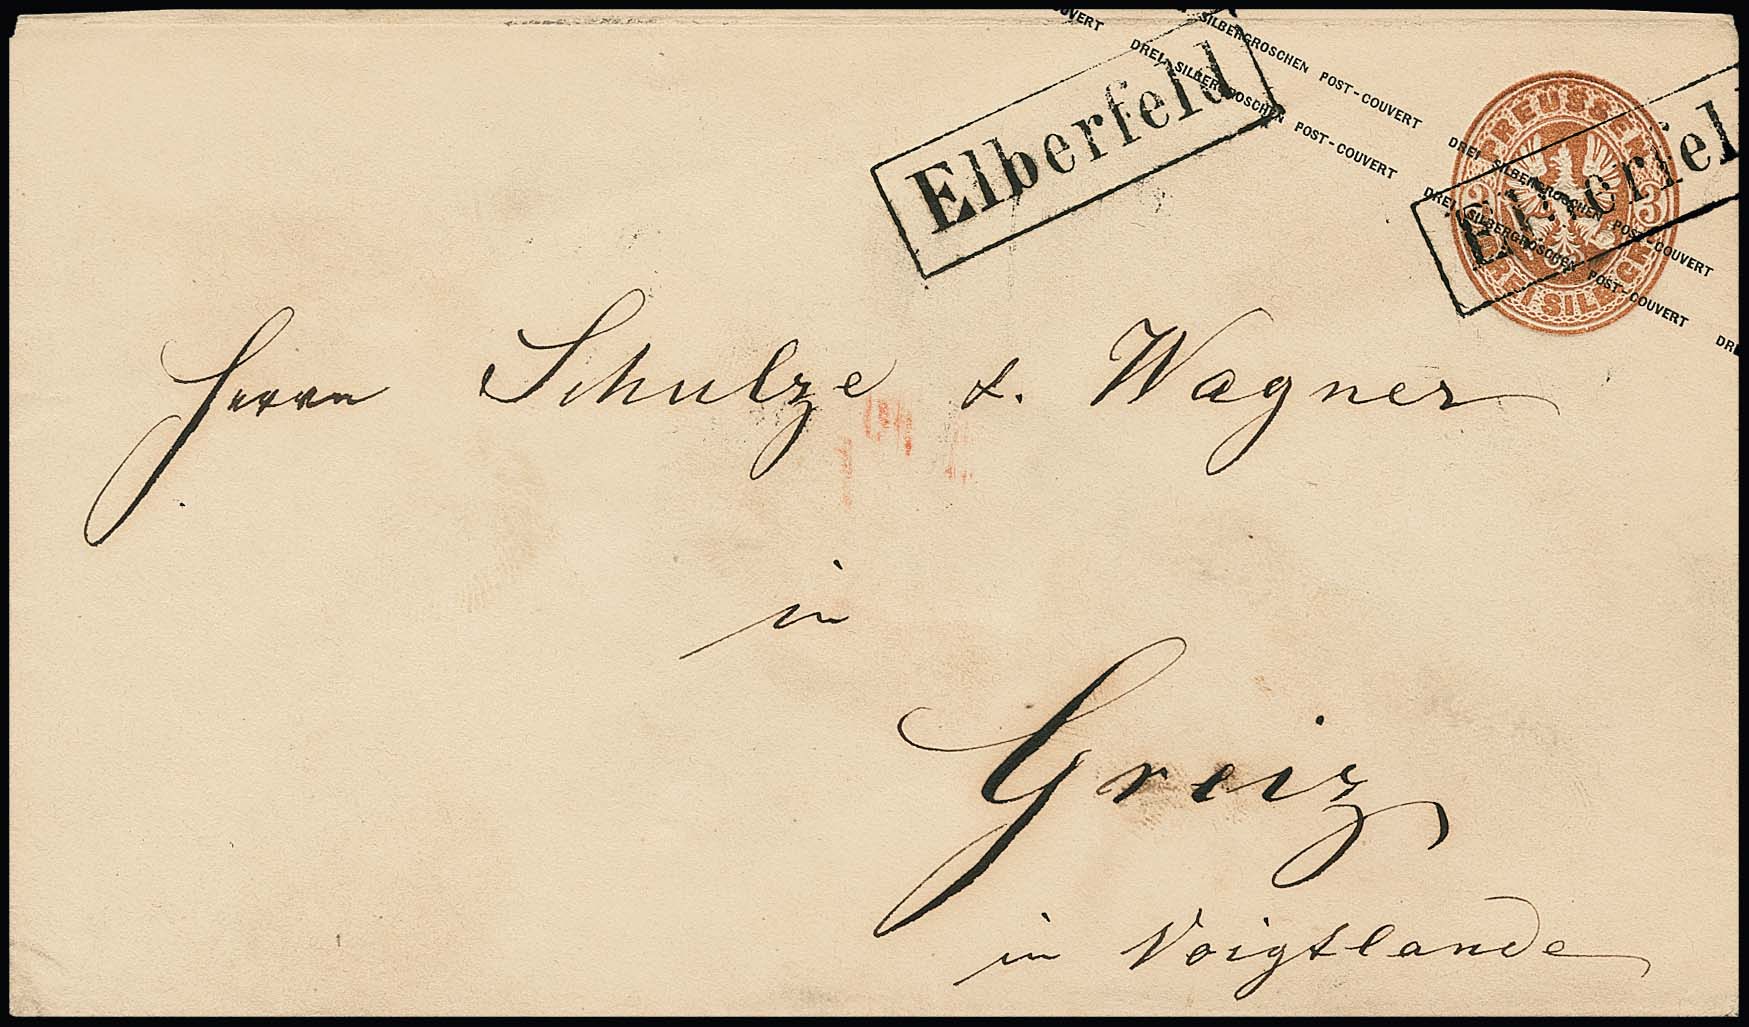 COUVERT
SILBERGROSCHEN POST-COUVERT DREI SILBERGROSCHEN POST-COUVERT DREI
DREI SILBERGROSCHEN POST-COUVERT DREI SILBERGROSCHEN POST-COUVERT
Elberfeld
Elberfel
PREUSSEN
3 3
DREI SILBERGR.
Herrn Schulze & Wagner
in
Greiz
in Voigtlande